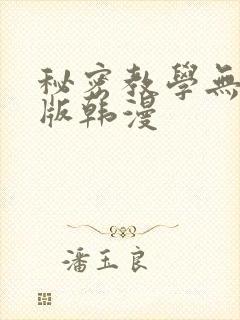 秘密教學無
版韩漫
潘玉良